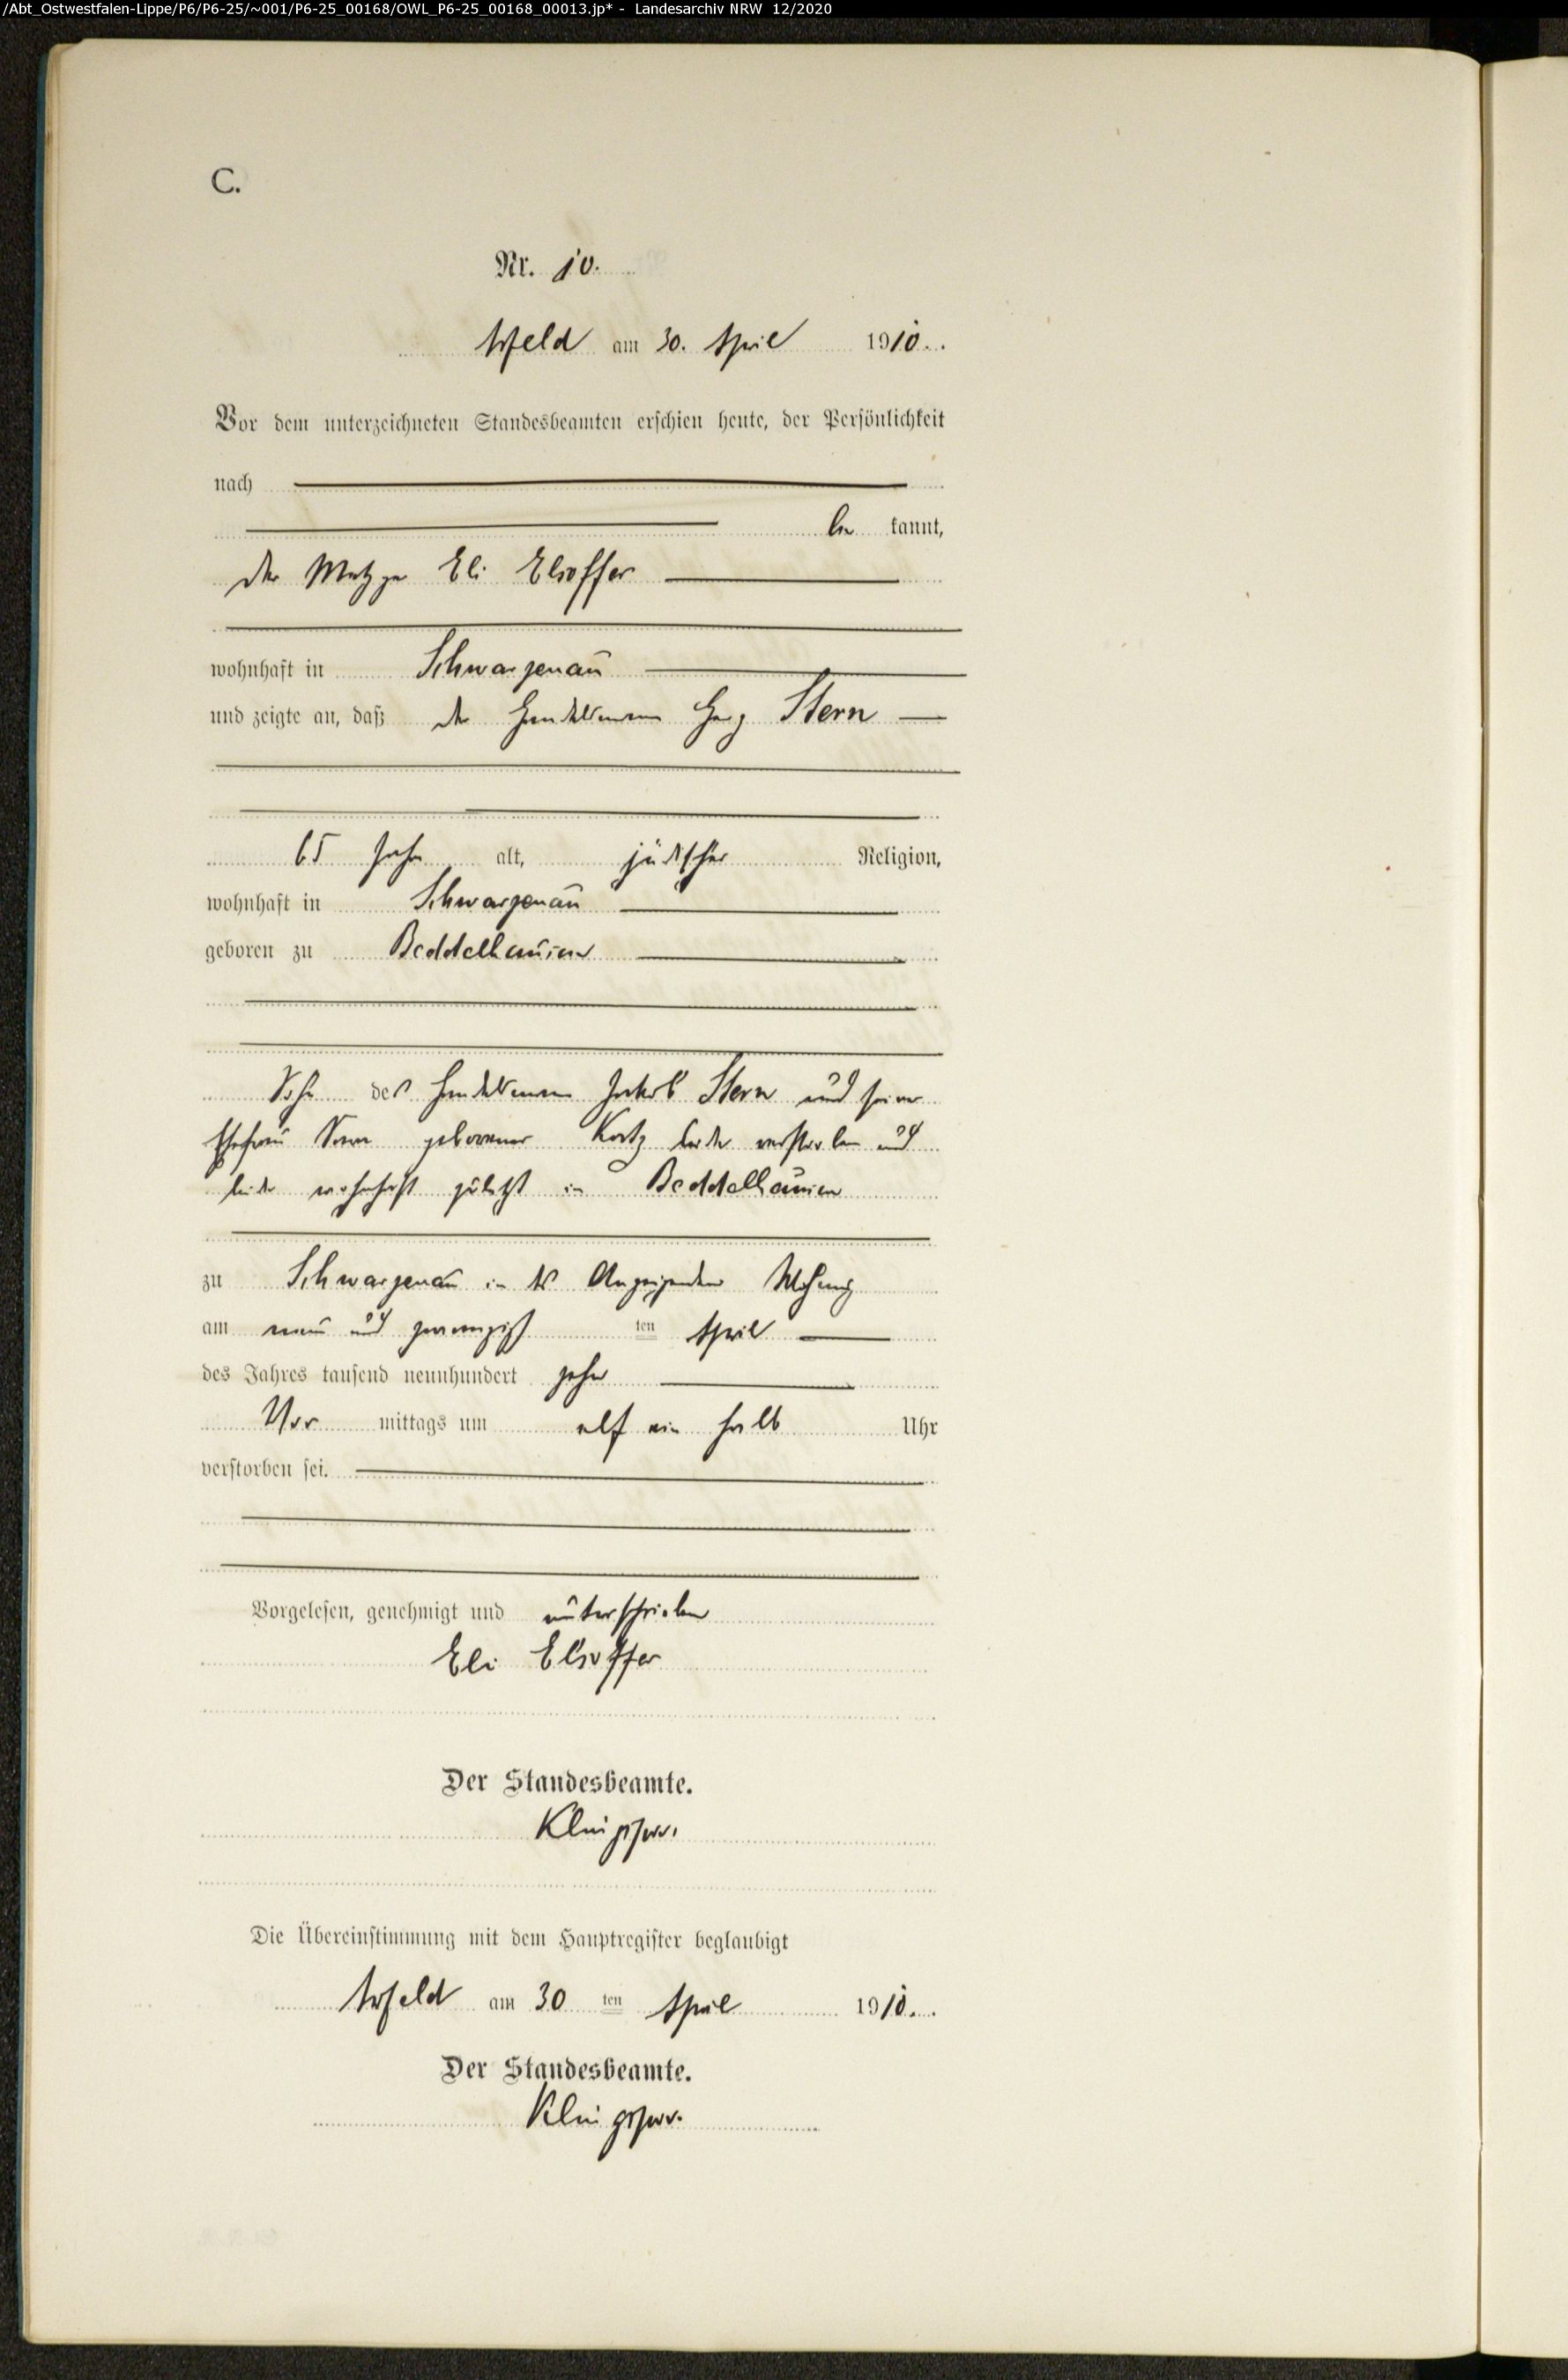 /Abt_Ostwestfalen-Lippe/P6/P6-25/~001/P6-25_00168/OWL_P6-25_00168_00013.jp* - Landesarchiv NRW 12/2020
C.
Nr. 10.
Arfeld am 30. April 1910.
Vor dem unterzeichneten Standesbeamten erschien heute, der Persönlichkeit
nach
be kannt,
der Metzger Eli Elsoffer
wohnhaft in Schwarzenau
und zeigte an, daß der Handelsmann Herz Stern
65 Jahre alt, jüdischer Religion,
wohnhaft in Schwarzenau
geboren zu Beddelhausen
Sohn des Handelsmann Jakob Stern und seiner
Ehefrau geborener Katz beide verstorben und
beide wohnhaft zuletzt in Beddelhausen
zu Schwarzenau in des Anzeigenden Wohnung
am neun und zwanzigst ten April
des Jahres tausend neunhundert zehn
Vor mittags um elf ein halb Uhr
verstorben sei.
Vorgelesen, genehmigt und unterschrieben
Eli Elsoffer
Der Standesbeamte.
Die Übereinstimmung mit dem Hauptregister beglaubigt
Arfeld am 30 ten April 1910.
Der Standesbeamte.